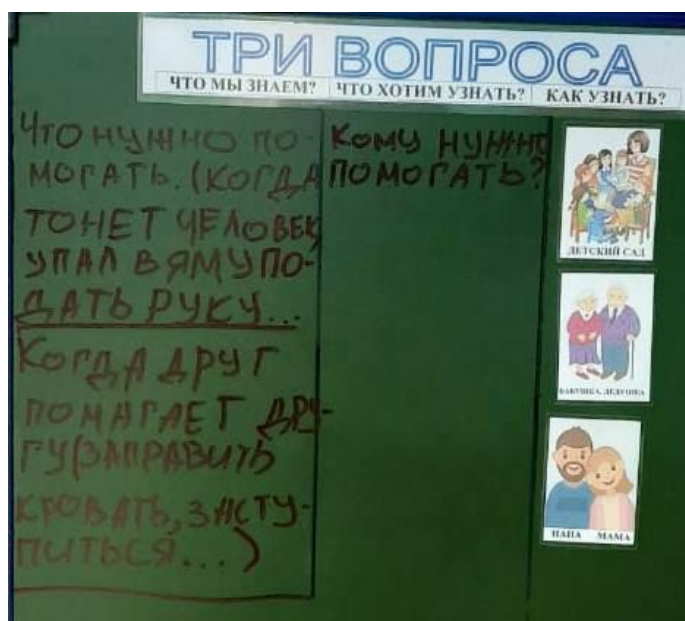 ТРИ ВОПРОСА
ЧТО МЫ ЗНАЕМ? ЧТО ХОТИМ УЗНАТЬ? КАК УЗНАТЬ?
ЧТО НУЖНО ПО-
МОГАТЬ. (КОГДА
ТОНЕТ ЧЕЛОВЕК,
УПАЛ В ЯМУ ПО-
ДАТЬ РУКУ...
КОГДА ДРУГ
ПОМАГАЕТ ДРУ-
ГУ (ЗАПРАВИТЬ
КРОВАТЬ, ЗАСТУ-
ПИТЬСЯ...)
КОМУ НУЖНО
ПОМОГАТЬ?
ДЕТСКИЙ САД
БАБУШКА, ДЕДУШКА
ПАПА МАМА